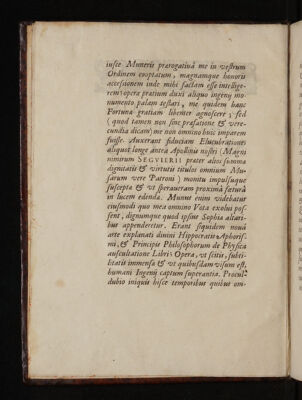 iuste Muneris prærogatiuâ me in vestrum
Ordinem cooptatum, magnamque honoris
accessionem inde mihi factam esse intellige-
rem: operæ pretium duxi aliquo ingenij mo-
numento palam testari, me quidem hanc
Fortunæ gratiam libenter agnoscere; sed
(quod tamen non sine præfatione & vere-
cundia dicam) me non omnino huic imparem
fuisse. Auxerant fiduciam Elucubrationes
aliquot longe anteà Apollinis nostri (Magni
nimirum SEGVIERII præter alios summa
dignitatis & virtutis titulos omnium Mu-
sarum vere Patroni) monitu impulsuque
susceptæ & vt speraueram proximâ fæturâ
in lucem edendæ. Munus enim videbatur
eiusmodi quo mea omnino Vota exolui pos-
sent, dignumque quod ipsius Sophiæ altari-
bus appenderetur. Erant siquidem nouâ
arte explanati diuini Hippocratis Aphoris-
mi, & Principis Philosophorum de Physica
auscultatione Libri: Opera, vt scitis, subti-
litatis immensæ & vt quibusdam visum est,
humani Ingenij captum superantia. Procul-
dubio iniquis hisce temporibus quibus om-